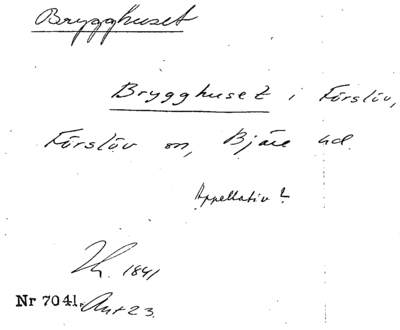 Brygghuset
Brygghuset i Förslöv,
Förslöv sn, Bjäre hd.
Appellativ?
1841
Nr 7041. Ant 23.